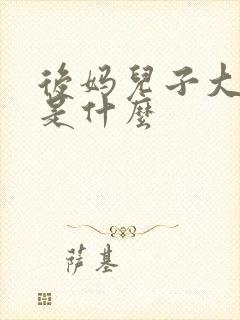 後妈兒子大
是什麼
萨基